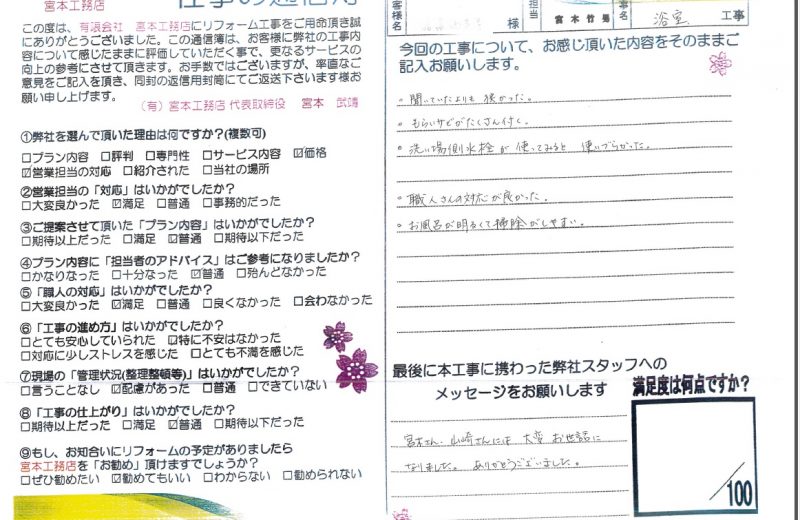 宮本工務店
この度は、有限会社 宮本工務店にリフォーム工事をご用命頂き誠
にありがとうございました。この通信簿は、お客様に弊社の工事内
容について感じたままに評価していただく事で、更なるサービスの
向上の参考にさせて頂きます。お手数ではございますが、率直なご
意見をご記入を頂き、同封の返信用封筒にてご返送下さいます様お
願い申し上げます。
(有)宮本工務店 代表取締役 宮本 武靖
①弊社を選んで頂いた理由は何ですか?(複数可)
□プラン内容 □評判 □専門性 □サービス内容 ☑価格
☑営業担当の対応 □紹介された □当社の場所
②営業担当の「対応」はいかがでしたか?
□大変良かった ☑満足 □普通 □事務的だった
③ご提案させて頂いた「プラン内容」はいかがでしたか?
□期待以上だった □満足 ☑普通 □期待以下だった
④プラン内容に「担当者のアドバイス」はご参考になりましたか?
□かなりなった □十分なった ☑普通 □殆んどなかった
⑤「職人の対応」はいかがでしたか?
□大変良かった ☑満足 □普通 □良くなかった □会わなかった
⑥「工事の進め方」はいかがでしたか?
□とても安心していられた ☑特に不安はなかった
□対応に少しストレスを感じた □とても不満を感じた
⑦現場の「管理状況(整理整頓等)」はいかがでしたか?
□言うことなし ☑配慮があった □普通 □できていない
⑧「工事の仕上がり」はいかがでしたか?
□期待以上だった □満足 ☑普通 □期待以下だった
⑨もし、お知合いにリフォームの予定がありましたら
宮本工務店を「お勧め」頂けますでしょうか?
□ぜひ勧めたい ☑勧めてもいい □わからない □勧められない
客様名 様 担当 宮本竹男 事名 浴室 工事
今回の工事について、お感じ頂いた内容をそのままご
記入お願いします。
・聞いていたよりも 狭かった。
・もらいサビがたくさん付く。
・洗い場側水栓が 使ってみると 使いづらかった。
・職人さんの対応が良かった。
・お風呂が明るくて掃除がしやすい。
最後に本工事に携わった弊社スタッフへの
メッセージをお願いします
宮本さん、山崎さんには 大変 お世話に
なりました。 ありがとうございました。
満足度は何点ですか?
/100